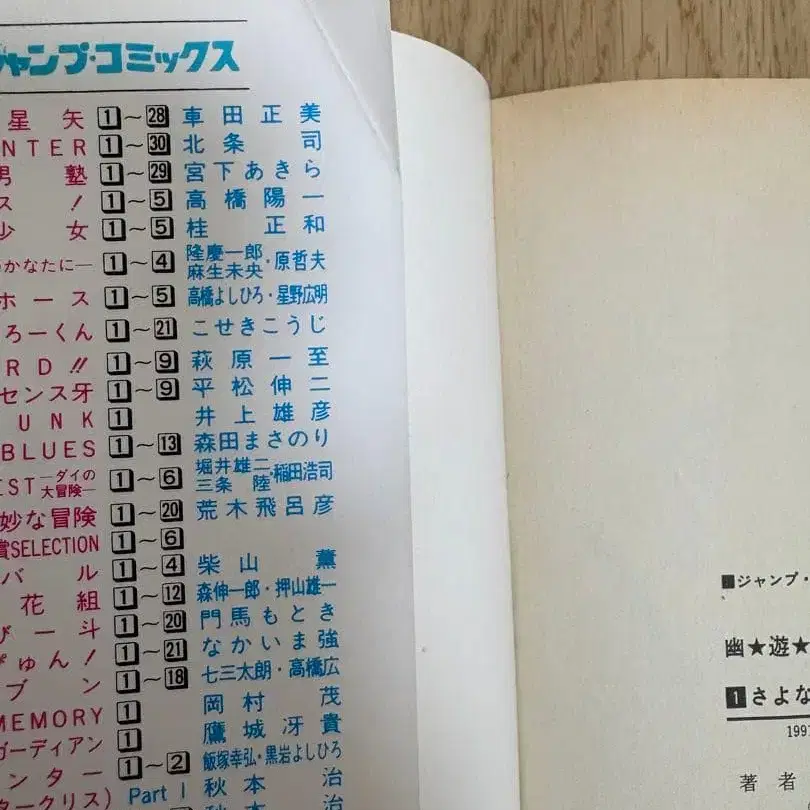 ャンプ・コミックス
星矢 1~28 車田正美
NTER 1~30 北条司
男塾 1~29 宮下あきら
ス! 1~5 高橋陽一
少女 1~5 桂正和
かなたに— 1~4 隆慶一郎・麻生未央・原哲夫
ホース 1~5 高橋よしひろ・星野広明
ろーくん 1~21 こせきこうじ
RD!! 1~9 萩原一至
センス牙 1~9 平松伸二
UNK 1 井上雄彦
BLUES 1~13 森田まさのり
EST—ダイの大冒険— 1~6 堀井雄二・三条陸・稲田浩司
妙な冒険 1~20 荒木飛呂彦
賞SELECTION 1~6
バル 1~4 柴山薫
花組 1~12 森伸一郎・押山雄一
び一斗 1~20 門馬もとき
ぴゅん! 1~21 なかいま強
ブン 1~18 七三太朗・高橋広
MEMORY 1 岡村茂
ガーディアン 1 鷹城冴貴
ンター 1~2 飯塚幸弘・黒岩よしひろ
タークリス) Part 1 秋本治
秋本治
■ジャンプ・
幽★遊★
1 さよな
199
著者